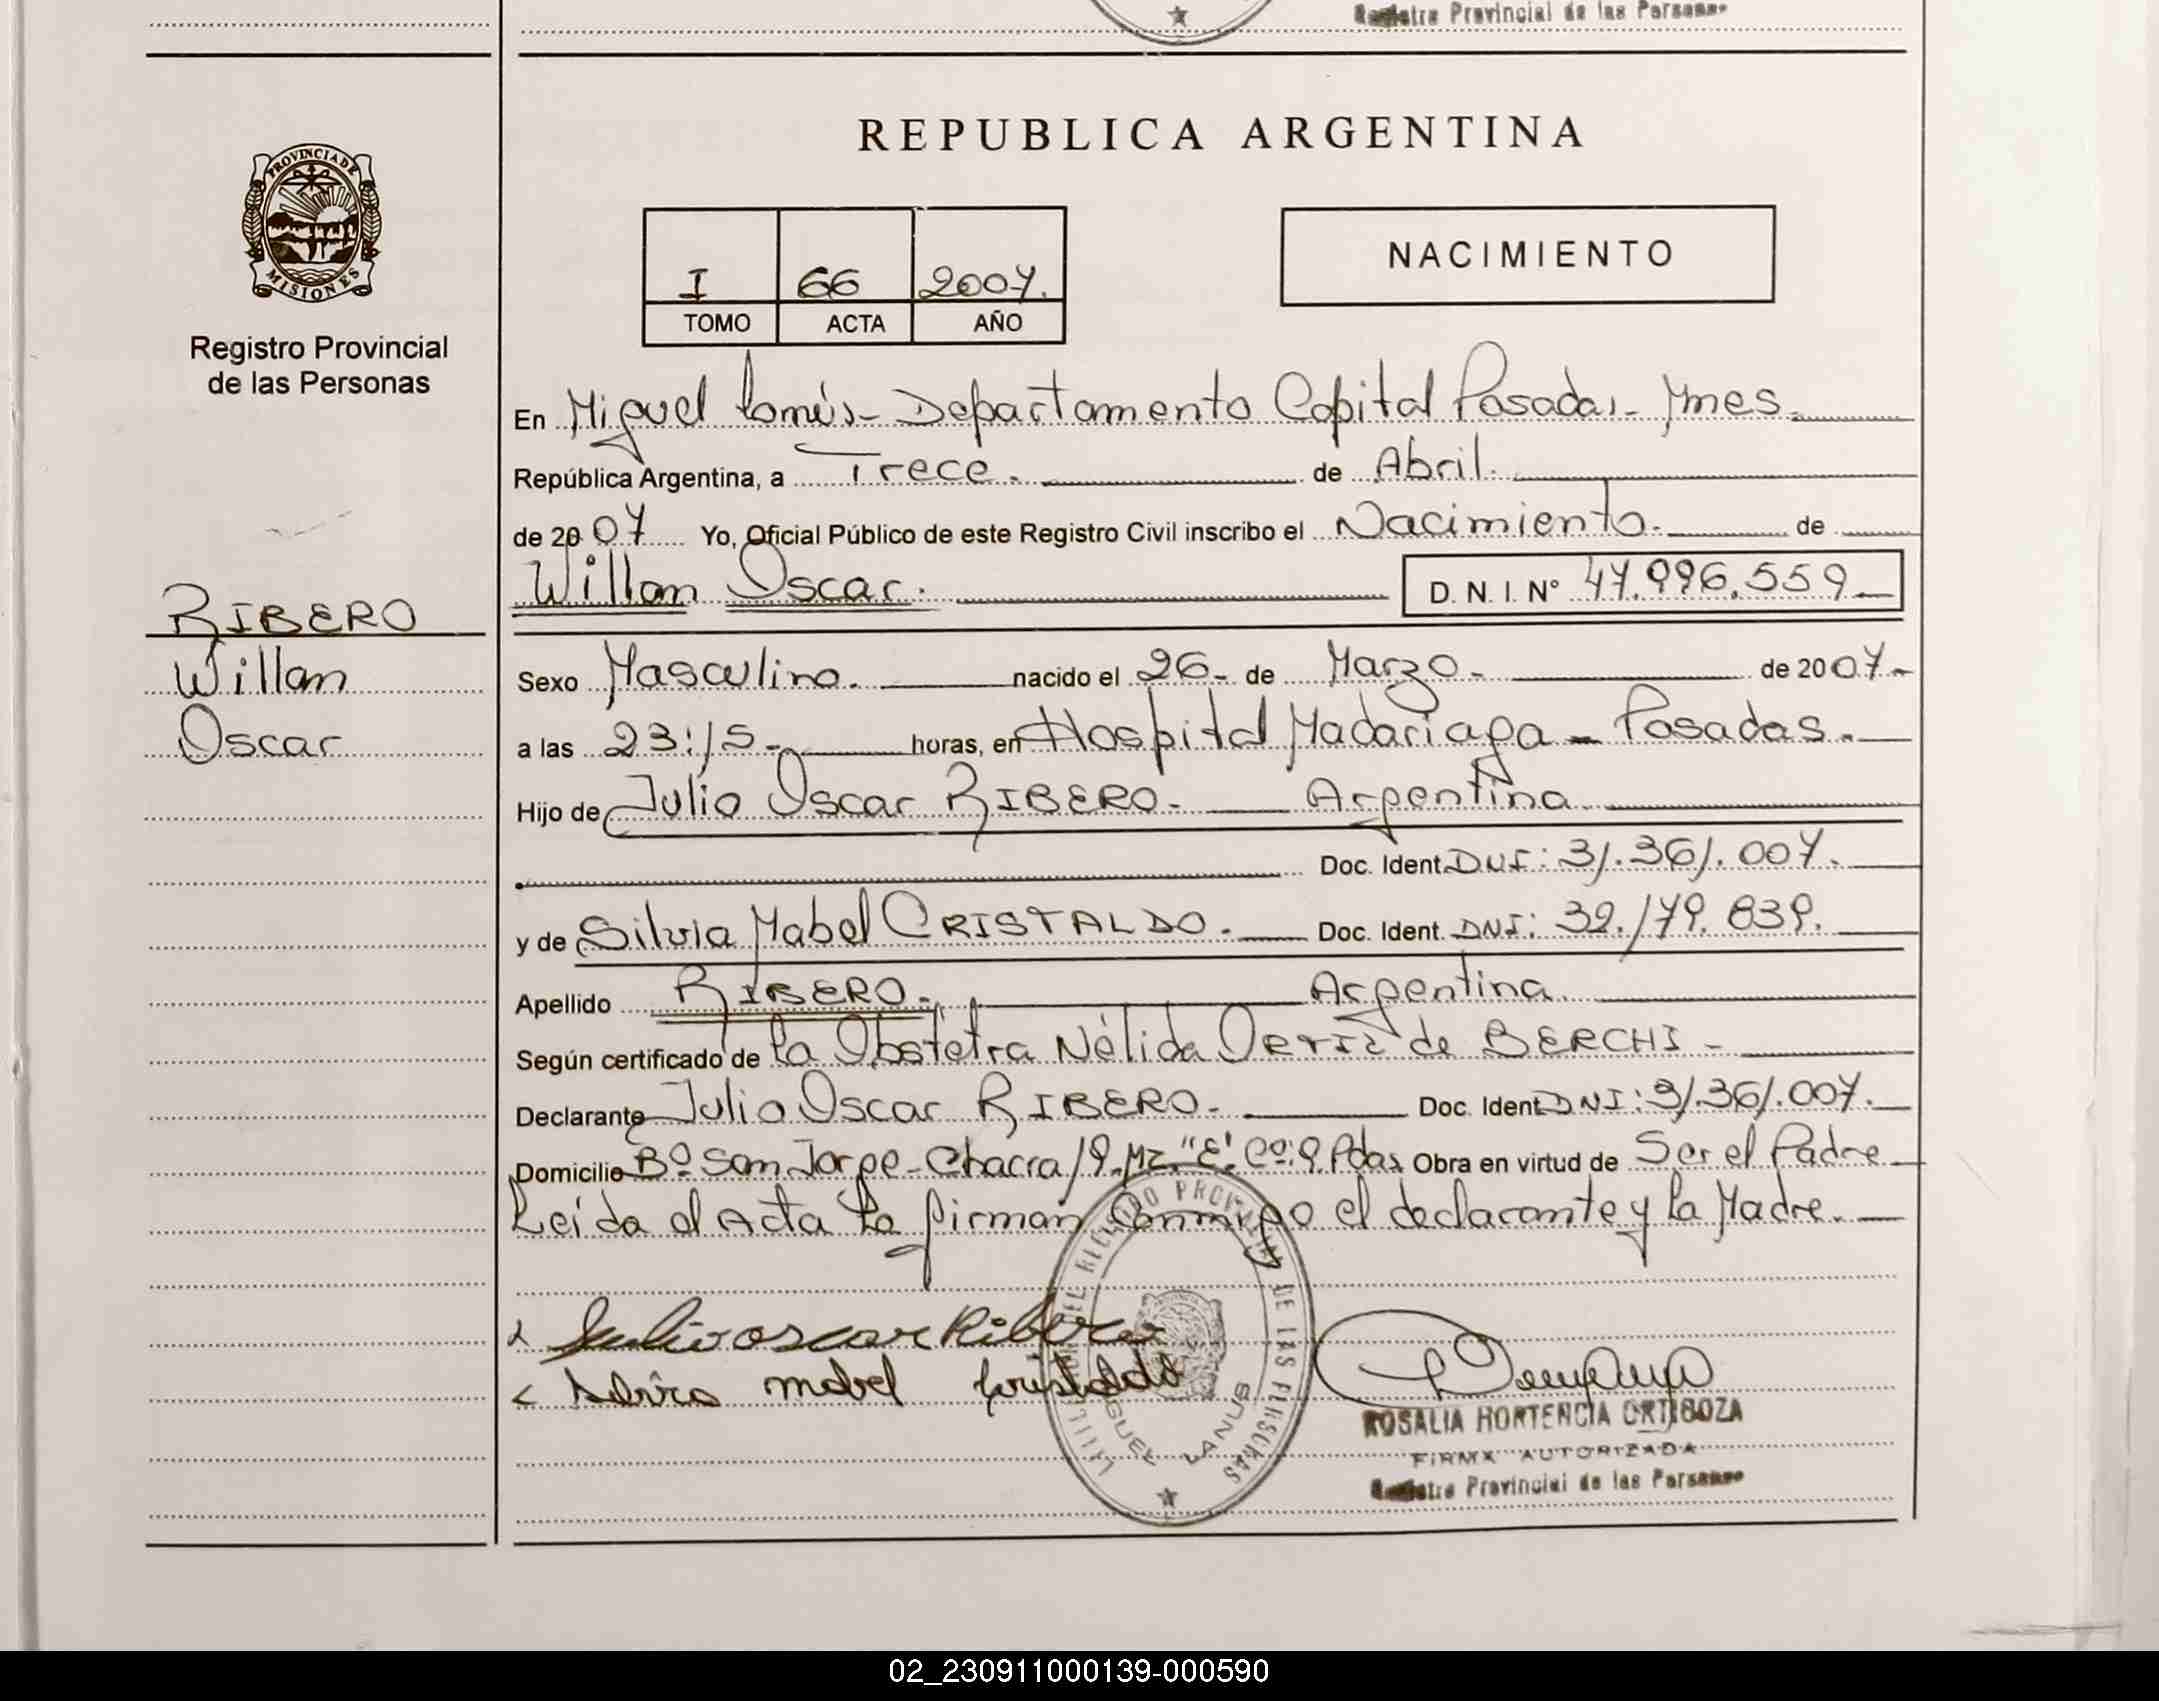 Registro Provincial de las Personas
REPUBLICA ARGENTINA
PROVINCIA DE MISIONES
Registro Provincial
de las Personas
I 66 2007.
TOMO ACTA AÑO
NACIMIENTO
RIBERO
Willan
Oscar
En Miguel Lanús - Departamento Capital Posadas - Mnes.
República Argentina, a Trece. de Abril.
de 2007 Yo, Oficial Público de este Registro Civil inscribo el Nacimiento. de
Willan Oscar. D. N. I. N° 47.996.559
Sexo Masculino. nacido el 26 - de Marzo - de 2007 -
a las 23:15 - horas, en Hospital Madariaga - Posadas.
Hijo de Julio Oscar RIBERO - Argentina
Doc. Ident. DNI: 31.361.007.
y de Silvia Mabel CRISTALDO. Doc. Ident. DNI: 32.179.839.
Apellido RIBERO. Argentina
Según certificado de la Obstetra Nélida de BERCHI -
Declarante Julio Oscar RIBERO - Doc. Ident. DNI: 31.361.007.
Domicilio Bº San Jorge - Chacra 19. Mz. "E". Cº: 9. Pdas. Obra en virtud de Ser el Padre
Leída el Acta la firman conmigo el declarante y la Madre.
Julio oscar Ribero
mabel Cristaldo
REGISTRO PROVINCIAL DE LAS PERSONAS
LANUS
ROSALIA HORTENCIA ORTIGOZA
FIRMA AUTORIZADA
Registro Provincial de las Personas
02_230911000139-000590